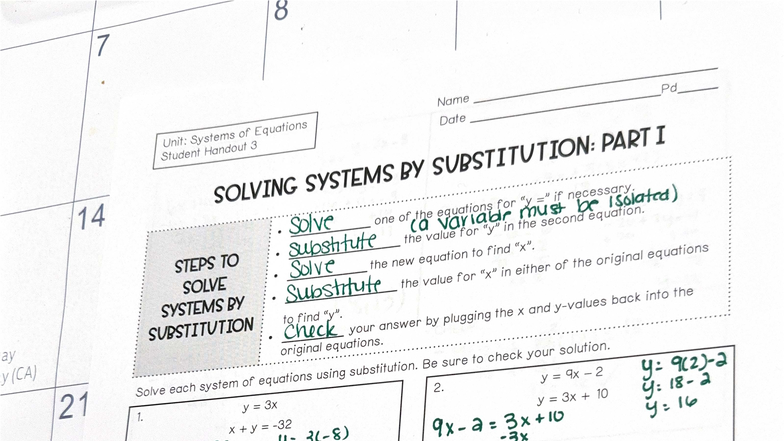 8
7
Name
Pd
Date
Unit: Systems of Equations
Student Handout 3
SOLVING SYSTEMS BY SUBSTITUTION: PART I
14
STEPS TO
SOLVE
SYSTEMS BY
SUBSTITUTION
• Solve one of the equations for "y =" if necessary.
(a variable must be isolated)
• substitute the value for "y" in the second equation.
• Solve the new equation to find "x".
• Substitute the value for "x" in either of the original equations
to find "y".
• Check your answer by plugging the x and y-values back into the
original equations.
ay
y (CA)
21
Solve each system of equations using substitution. Be sure to check your solution.
1.
y = 3x
x + y = -32
y = 3(-8)
2.
y = 9x - 2
y = 3x + 10
9x - 2 = 3x + 10
-3x
y = 9(2) - 2
y = 18 - 2
y = 16